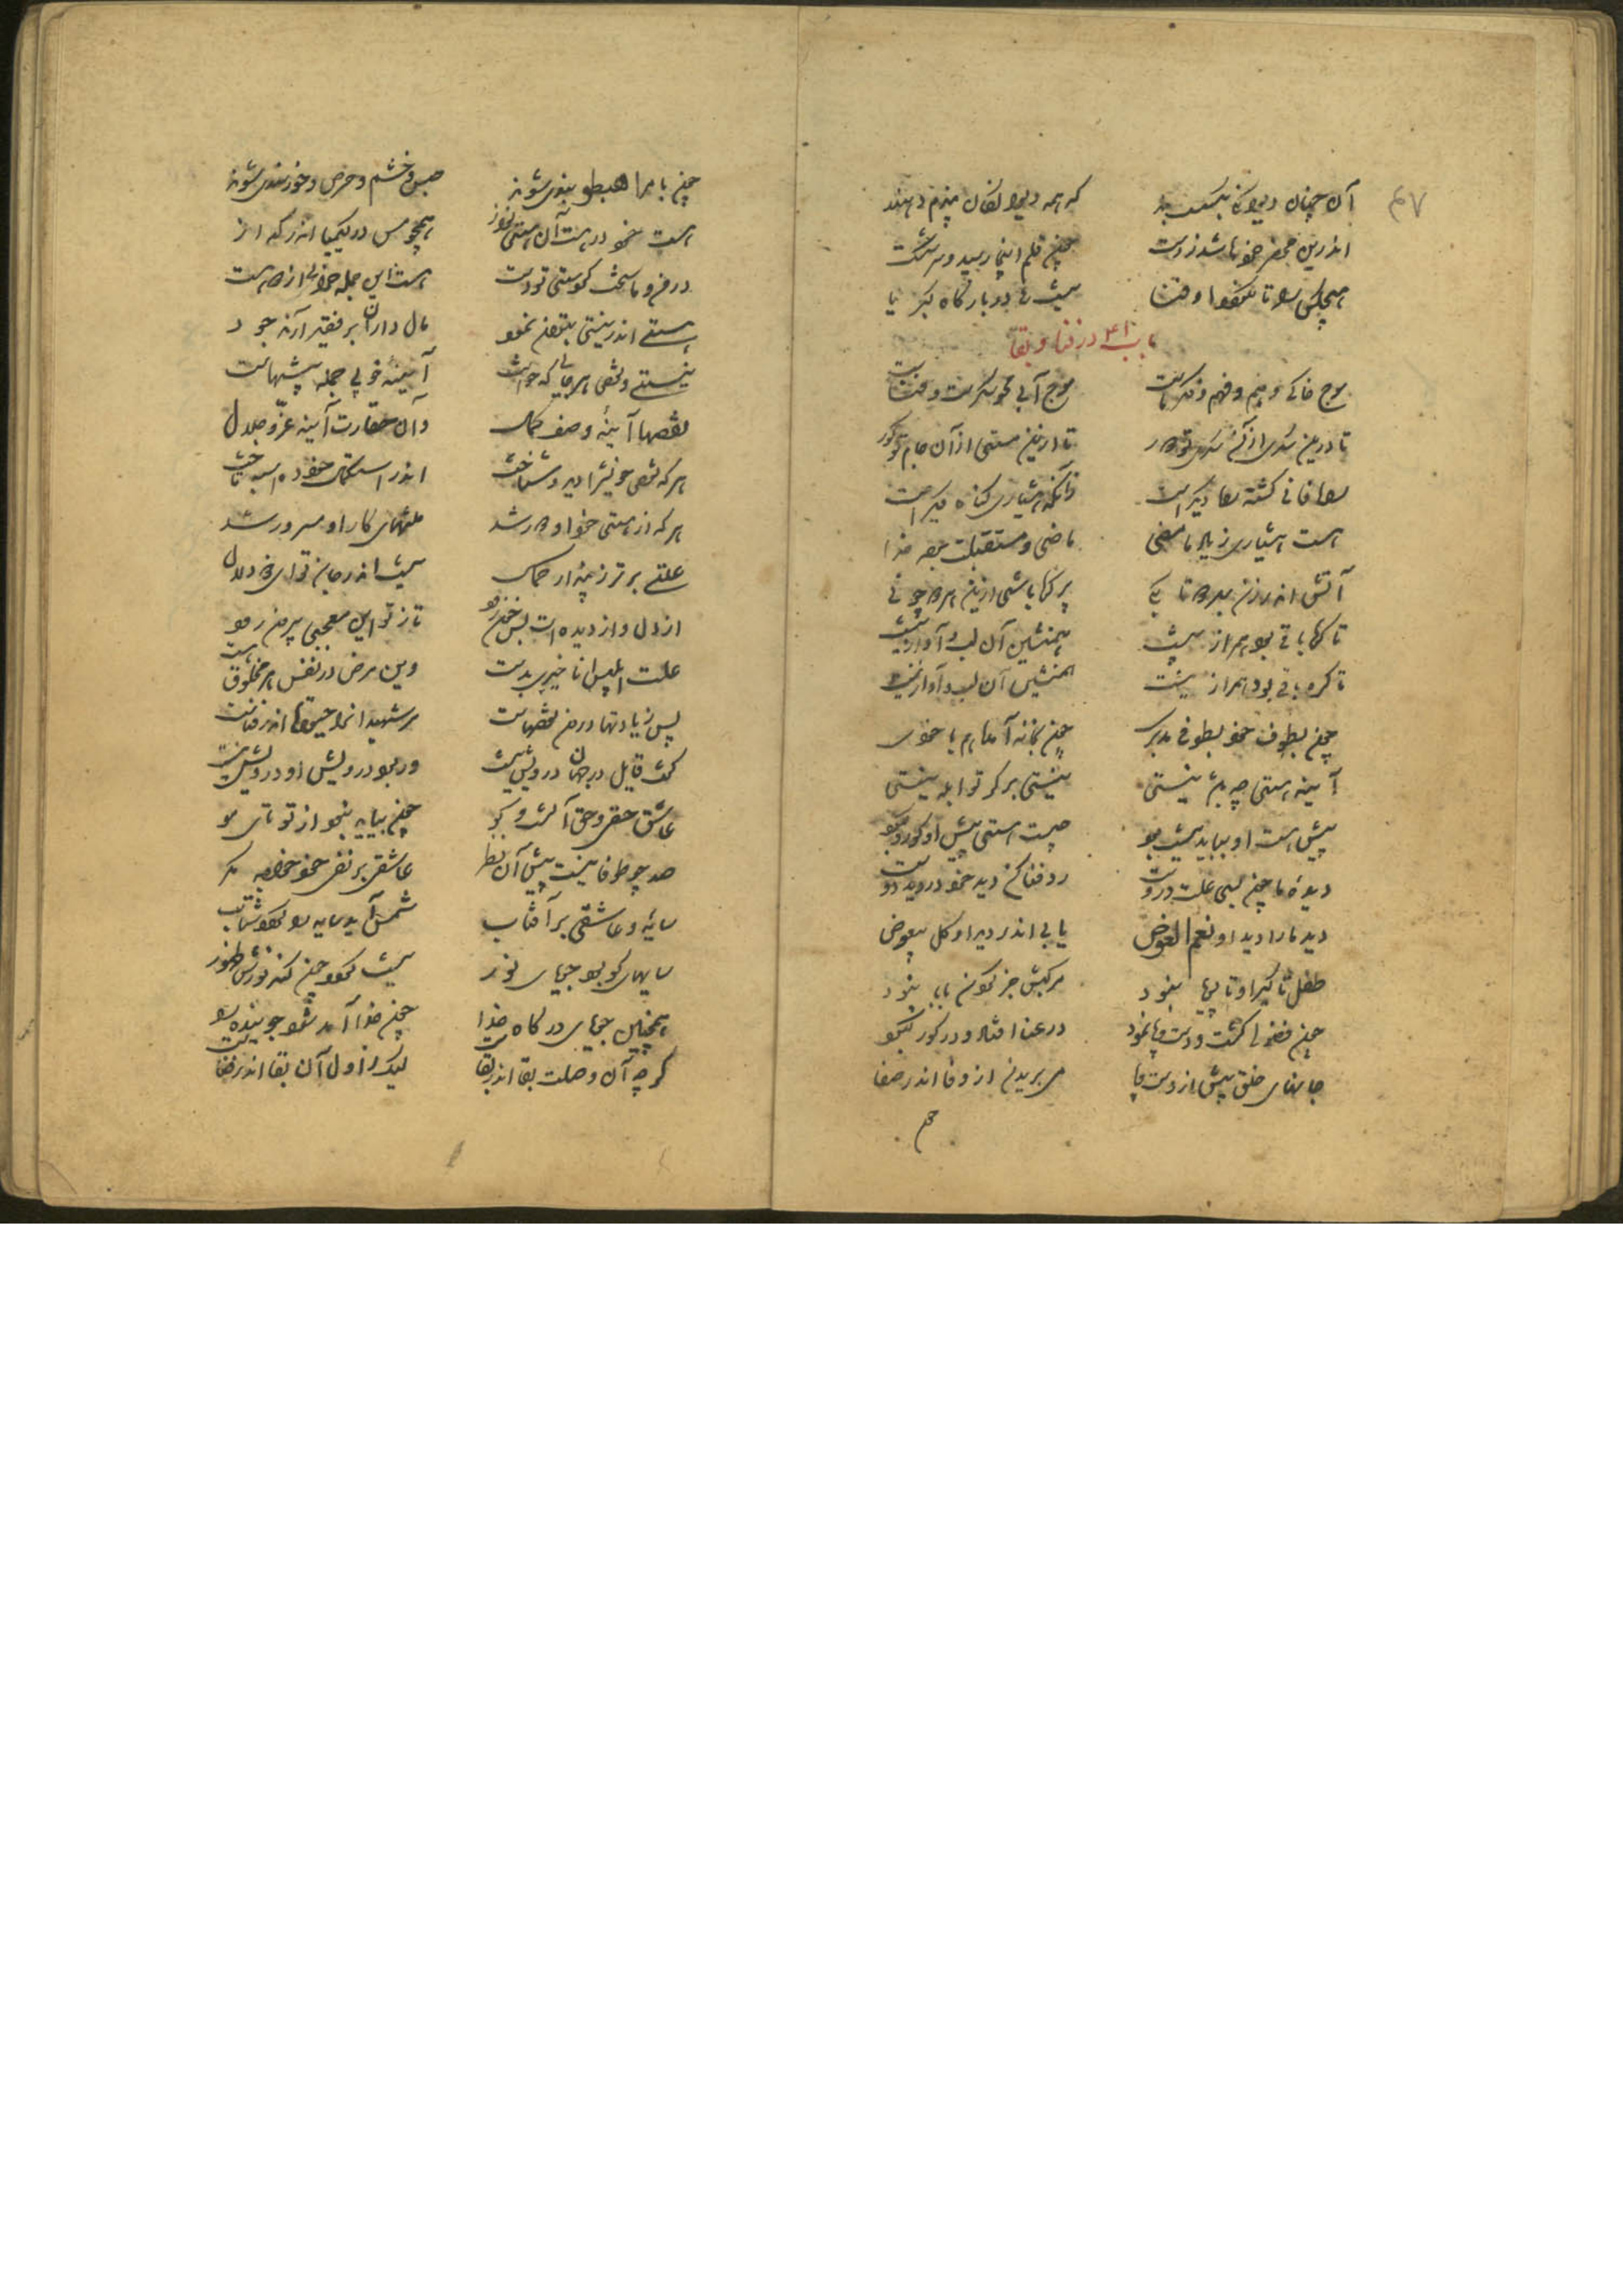 ۴۷
آن چنان دیوانگی بگسست بند که همه دیوانگان پندم دهند
اندرین محضر خردها شد ز دست چون قلم اینجا رسید و سر شکست
هیچ کس را تا نگردد او فنا نیست ره در بارگاه کبریا
باب در فنا و بقا
موج خاکی وهم و فهم و فکر ماست موج آبی محو و سکرست و فناست
تا درین سکری از آن سکری تو دور تا ازین مستی از آن جام تو کور
راه فانی گشته راه دیگر است زانکه هشیاری گناه دیگر است
هست هشیاری ز یاد ما مضی ماضی و مستقبلت پرده خدا
آتش اندر زن بهر دو تا بکی پر گره باشی ازین هر دو چو نی
تا گره با نی بود همراز نیست همنشین آن لب و آواز نیست
تا گره با نی بود همراز نیست همنشین آن لب و آواز نیست
چون بطوف خود بطوفی مرتدی چون بخانه آمدی هم با خودی
آینه هستی چه باشد نیستی نیستی بر گر تو ابله نیستی
پیش هست او بباید نیست بود چیست هستی پیش او کور و کبود
دیده ما چون بسی علت دروست رو فنا کن دید خود در دید دوست
دید ما را دید او نعم العوض یابی اندر دید او کل غرض
طفل تا گیرا و تا پویا نبود مرکبش جز گردن بابا نبود
چون فضولی گشت و دست و پا نمود در عنا افتاد و در کور و کبود
جانهای خلق پیش از دست و پا می پریدند از وفا اندر صفا
چون
چون بامر اهبطوا بندی شدند حبس خشم و حرص و خرسندی شدند
هستیت در هست آن هستی نواز همچو مس در کیمیا اندر گداز
در من و ما سخت کردستی دو دست هست این جمله خرابی از دو هست
هستی اندر نیستی بتوان نمود مال داران بر فقیر آرند جود
نیستی و نقص هر جایی که خاست آینه خوبی جمله پیشهاست
نقصها آیینه وصف کمال وان حقارت آینه عز و جلال
هر که نقص خویش را دید و شناخت اندر استکمال خود ده اسبه تاخت
هر که از هستی خود او دور شد منتهای کار او مسرور شد
علتی برتر ز پندار کمال نیست اندر جان تو ای ذو دلال
از دل و از دیده ات بس خون رود تا ز تو این معجبی بیرون رود
علت ابلیس انا خیری بدست وین مرض در نفس هر مخلوق هست
پس زیادتها درون نقصهاست مر شهیدان را حیوة اندر فناست
گفت قایل در جهان درویش نیست ور بود درویش او درویش نیست
عاشق حقی و حق آنست کو چون بیاید نبود از تو تای مو
صد چو تو فانیست پیش آن نظر عاشقی بر نفی خود خواجه مگر
سایه و عاشقی بر آفتاب شمس آید سایه لا گردد شتاب
سایهای کو بود جویای نور نیست گردد چون کند نورش ظهور
همچنین جویای درگاه خدا چون خدا آمد شود جوینده لا
گرچه آن وصلت بقا اندر بقاست لیک ز اول آن بقا اندر فناست